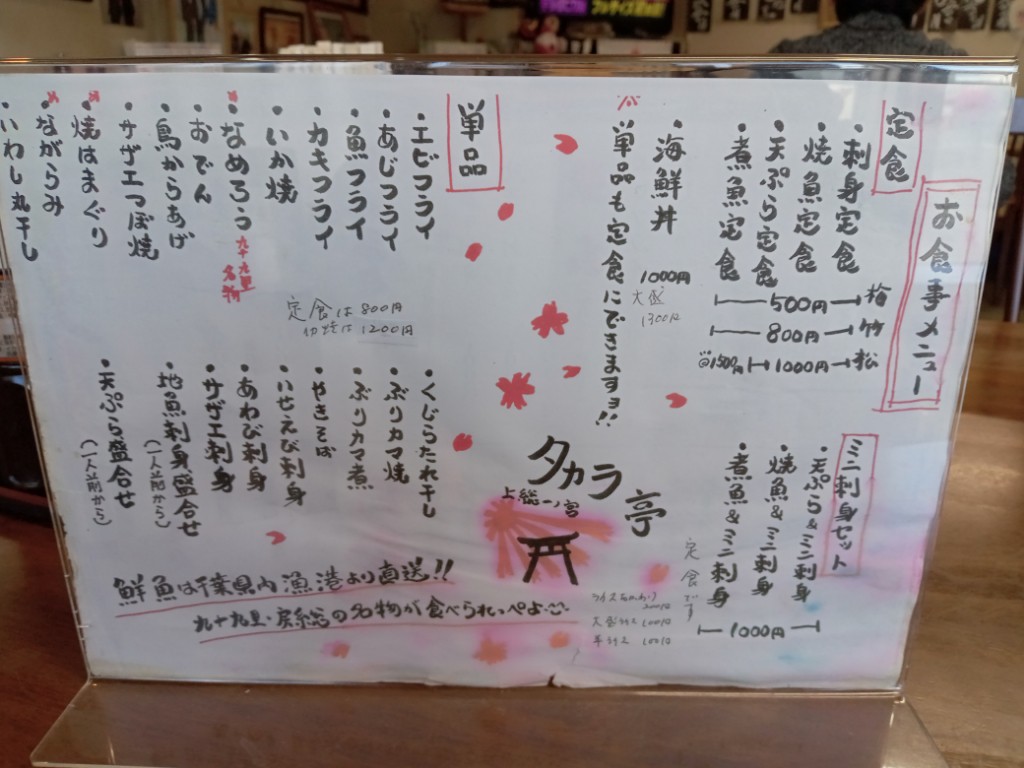 お食事メニュー
定食
・刺身定食
・焼魚定食
・天ぷら定食
・煮魚定食
500円 梅
800円 竹
1000円 松
1500円
・海鮮丼
1000円
大盛
1300円
単品も定食にできますョ!!
ミニ刺身セット
・天ぷら&ミニ刺身
・焼魚&ミニ刺身
・煮魚&ミニ刺身
1000円
定食です
大盛 100円
100円
タカラ亭
上総一ノ宮
単品
・エビフライ
・あじフライ
・魚フライ
・カキフライ
・いか焼
・なめろう
九十九里名物
・おでん
・鳥からあげ
・サザエつぼ焼
・焼はまぐり
・ながらみ
・いわし丸干し
定食は800円
1200円
・くじらたれ干し
・ぶりカマ焼
・ぶりカマ煮
・やきそば
・いせえび刺身
・あわび刺身
・サザエ刺身
・地魚刺身盛合せ
(一人前から)
・天ぷら盛合せ
(一人前から)
鮮魚は千葉県内漁港より直送!!
九十九里・房総の名物が食べられっぺよ